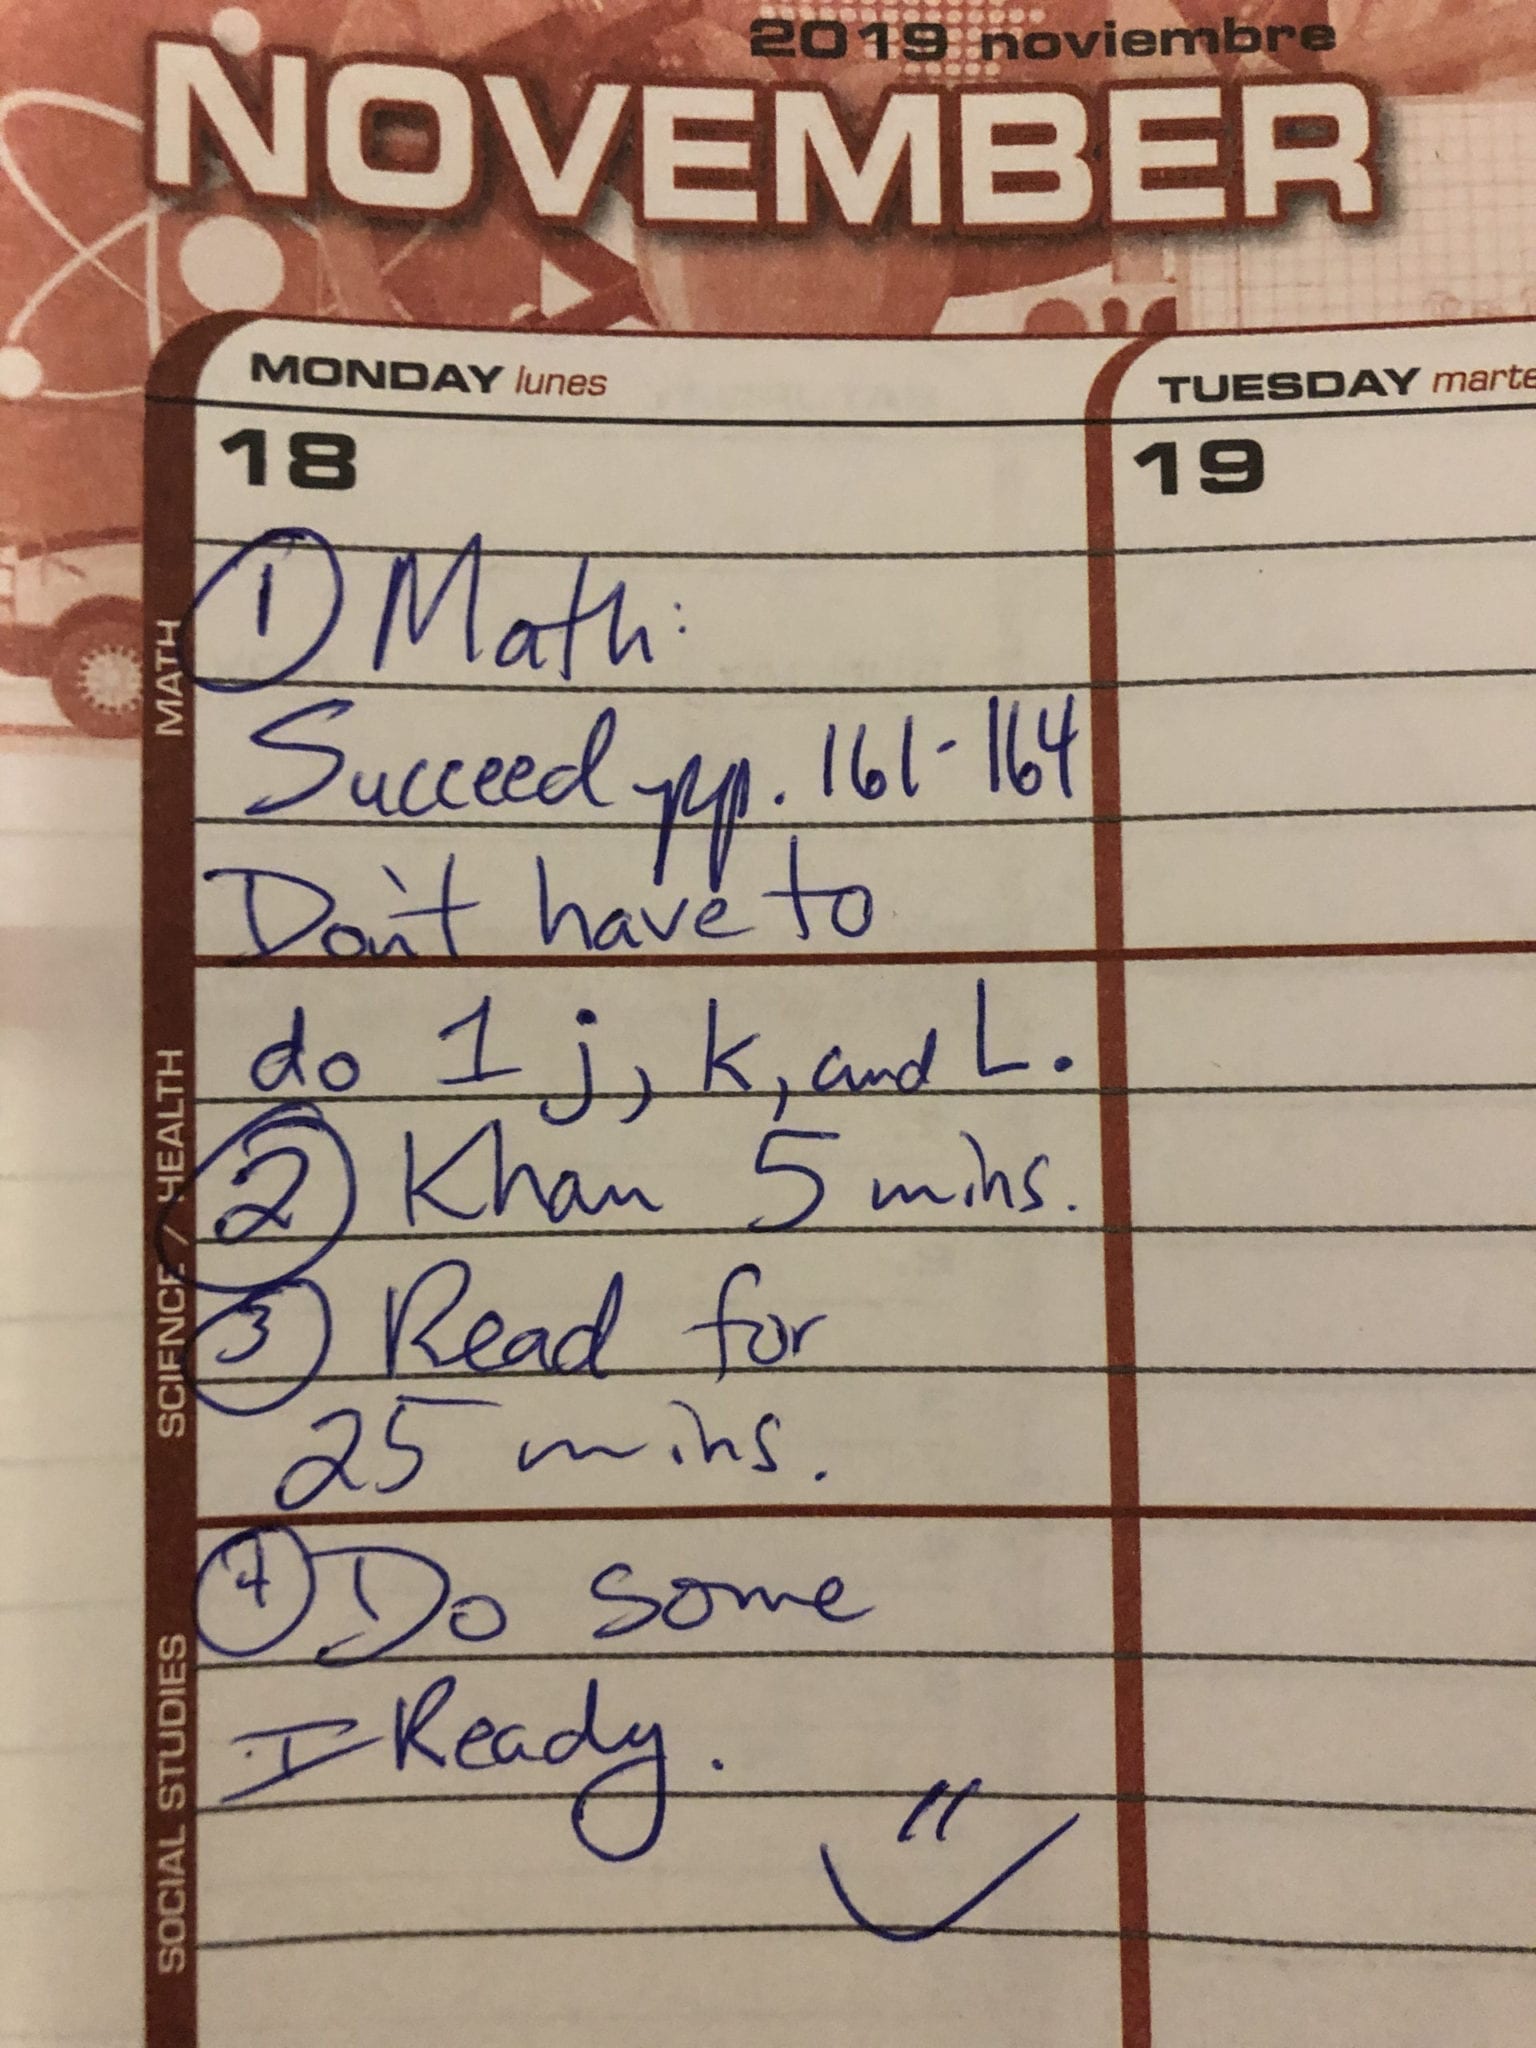 2019 noviembre
NOVEMBER
MONDAY lunes
TUESDAY marte
18
19
MATH
① Math:
Succeed pp. 161-164
Don't have to
SCIENCE / HEALTH
do 1 j, k, and L.
② Khan 5 mins.
③ Read for
25 mins.
SOCIAL STUDIES
④ Do some
I-Ready.